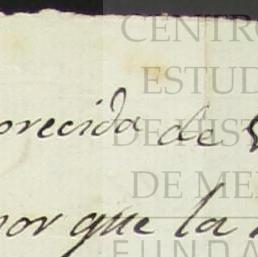 CENTRO
ESTUD
orecida de
DE HIST
DE ME
por que la
FUNDA